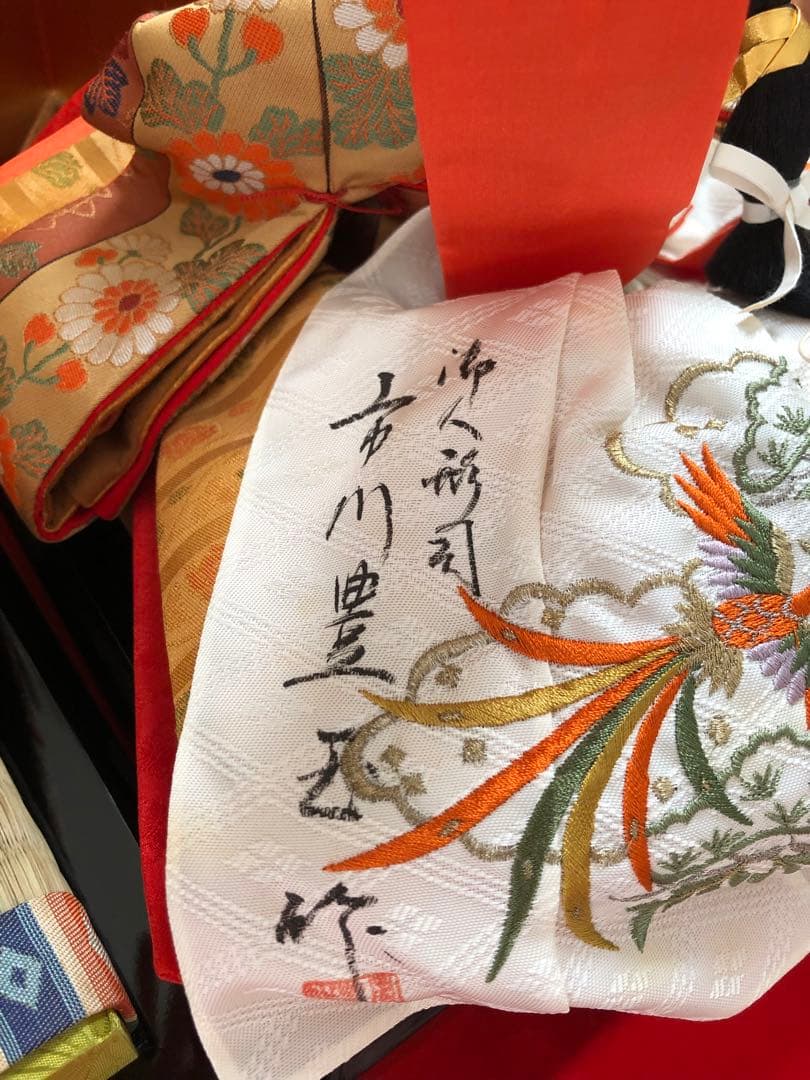 御人形司
市川豊玉作